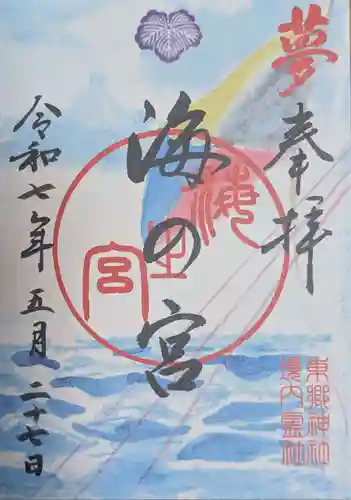 夢
奉拝
海の宮
海生宮
東郷神社
境内霊社
令和七年五月二十七日